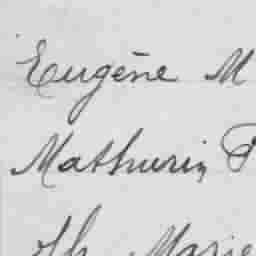 Eugène M
Mathurin P
Marie